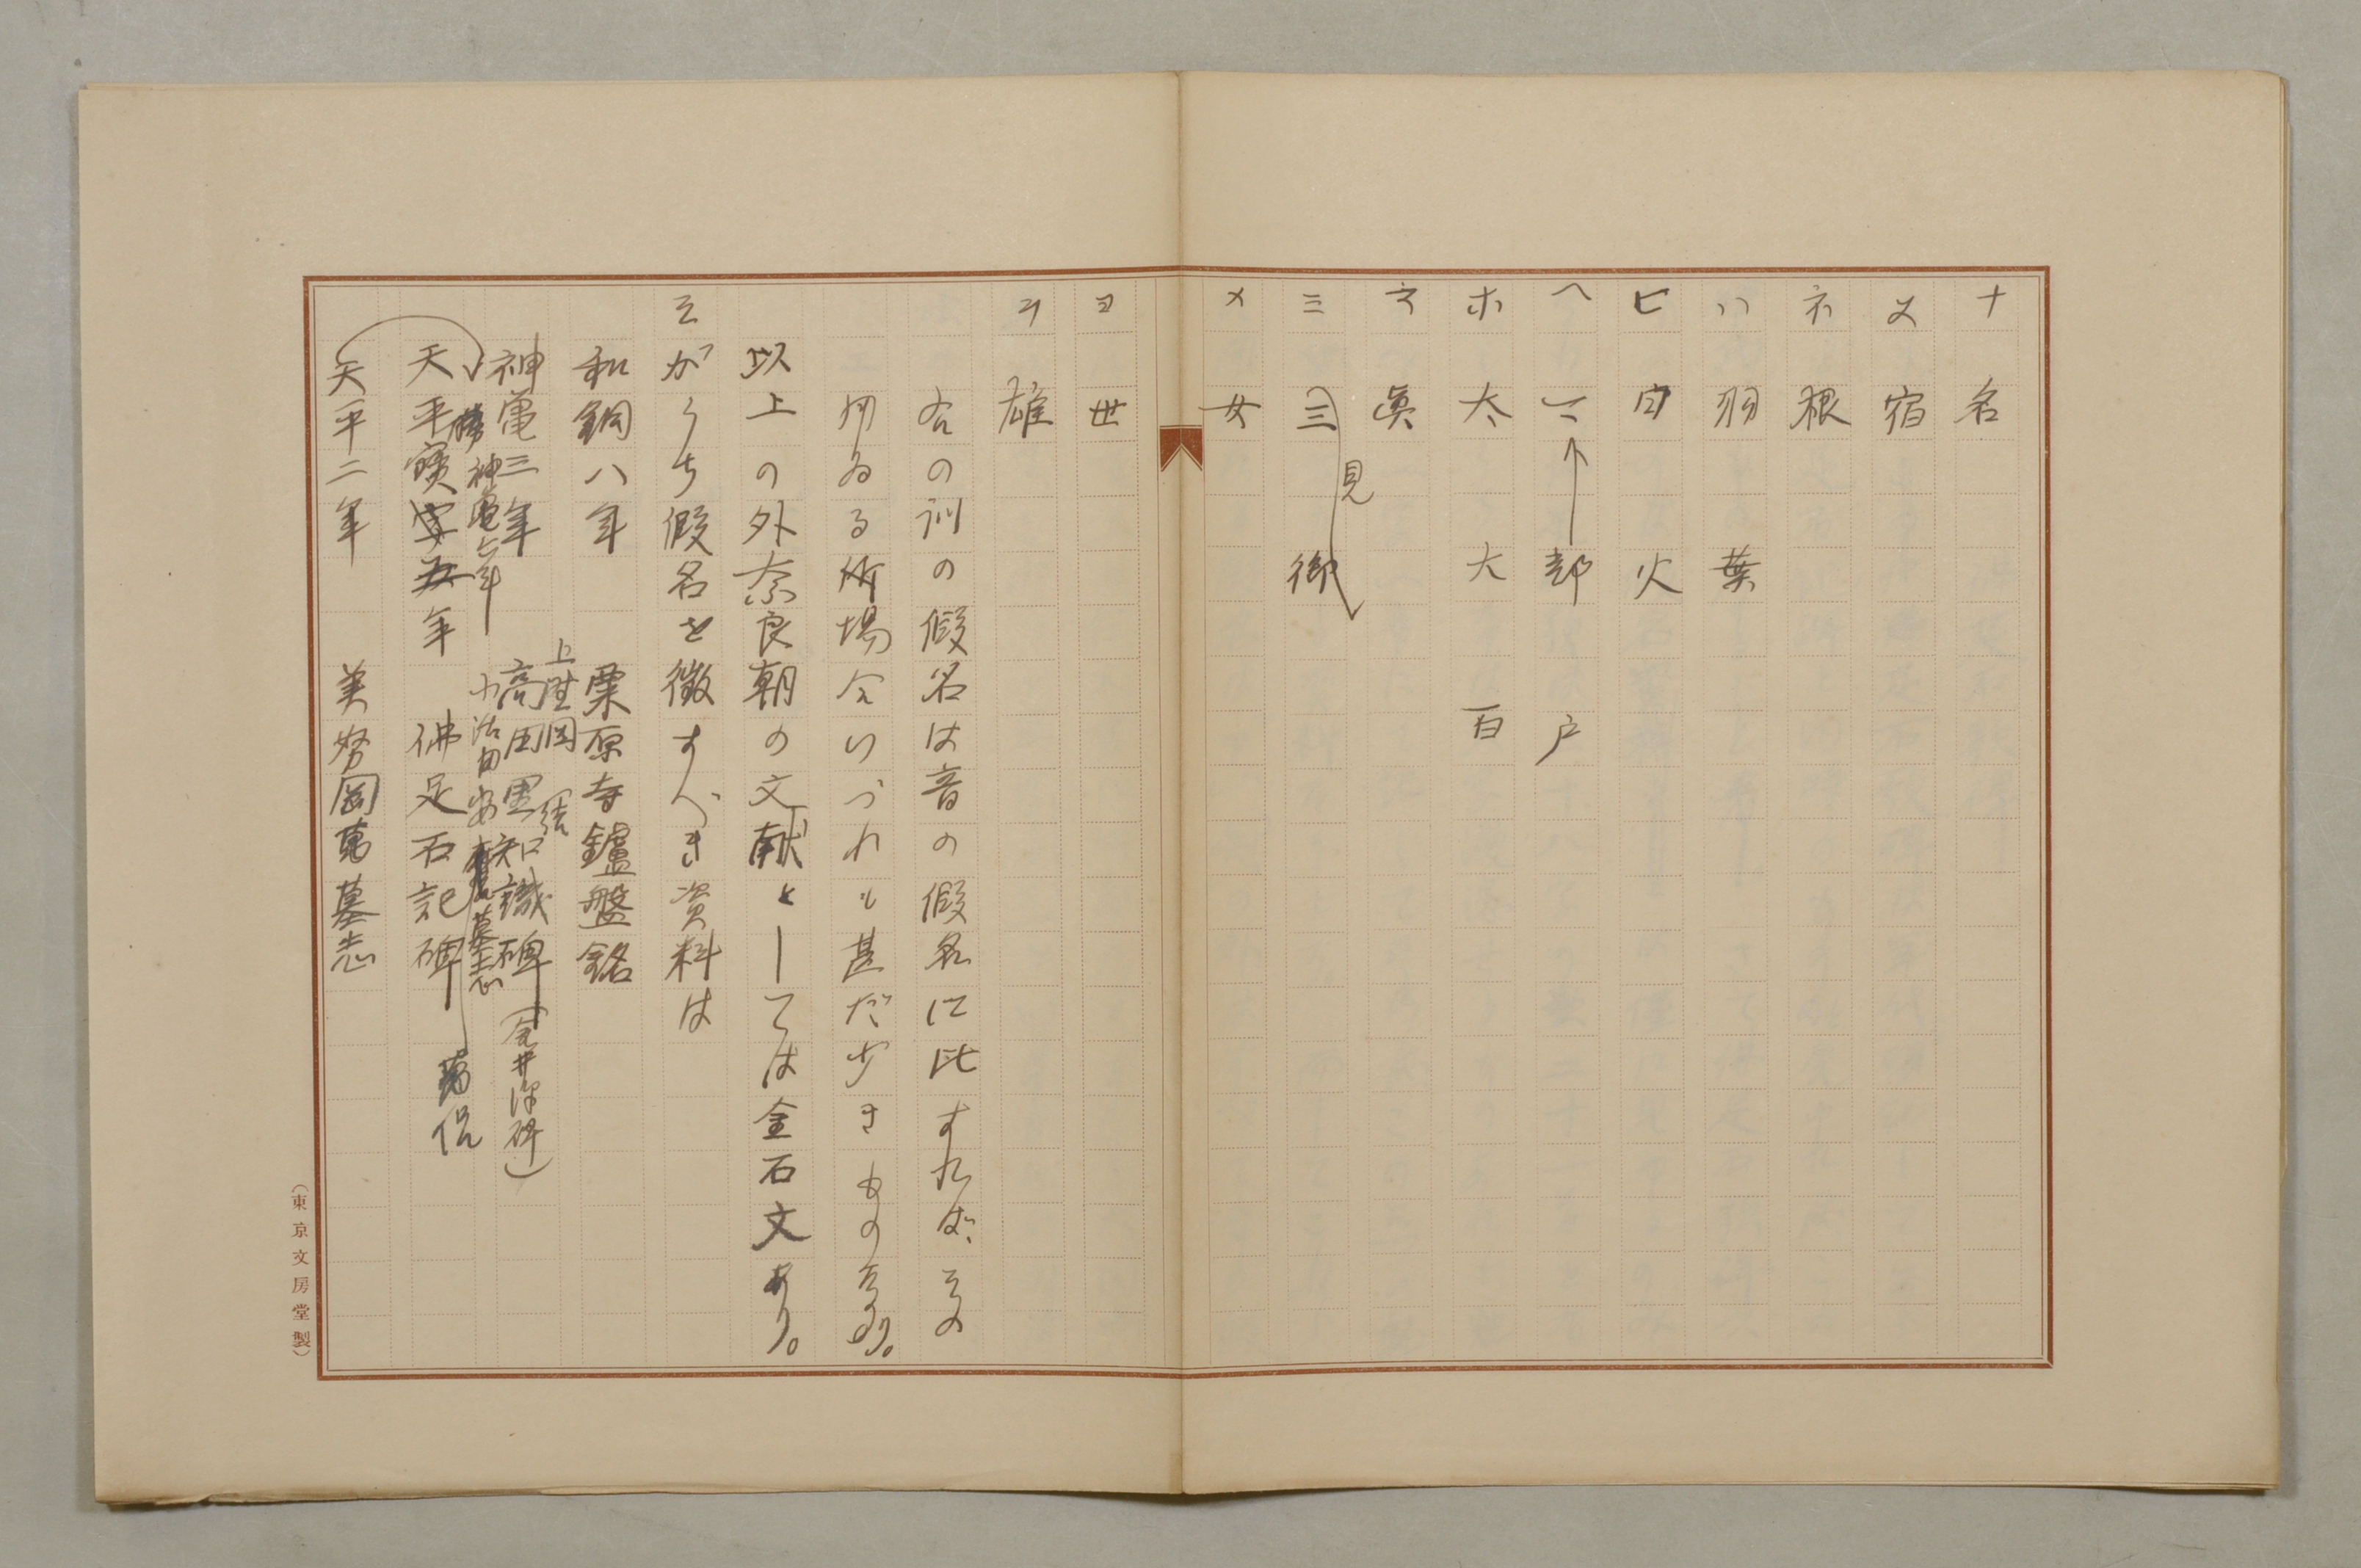 ナ 名
ヌ 宿
ネ 根
ハ 羽 葉
ヒ 日 火
ヘ 部 戸
ホ 太 大 百
マ 眞
ミ 三 見 御
メ 女
ヨ 世
ヲ 雄
右の訓の假名は音の假名に比すれば、その
用ゐる所場合いづれも甚だ少きものなり。
以上の外奈良朝の文献としては金石文あり。
そがうち假名を徴すべき資料は
和銅八年 粟原寺鑪盤銘
上野国
神亀三年 高田里 結 知識碑(金井沢碑)
神亀六年 小治田安萬侶墓志
天平勝寳五年 佛足石記碑
天平二年 美努岡萬墓志
(東京文房堂製)